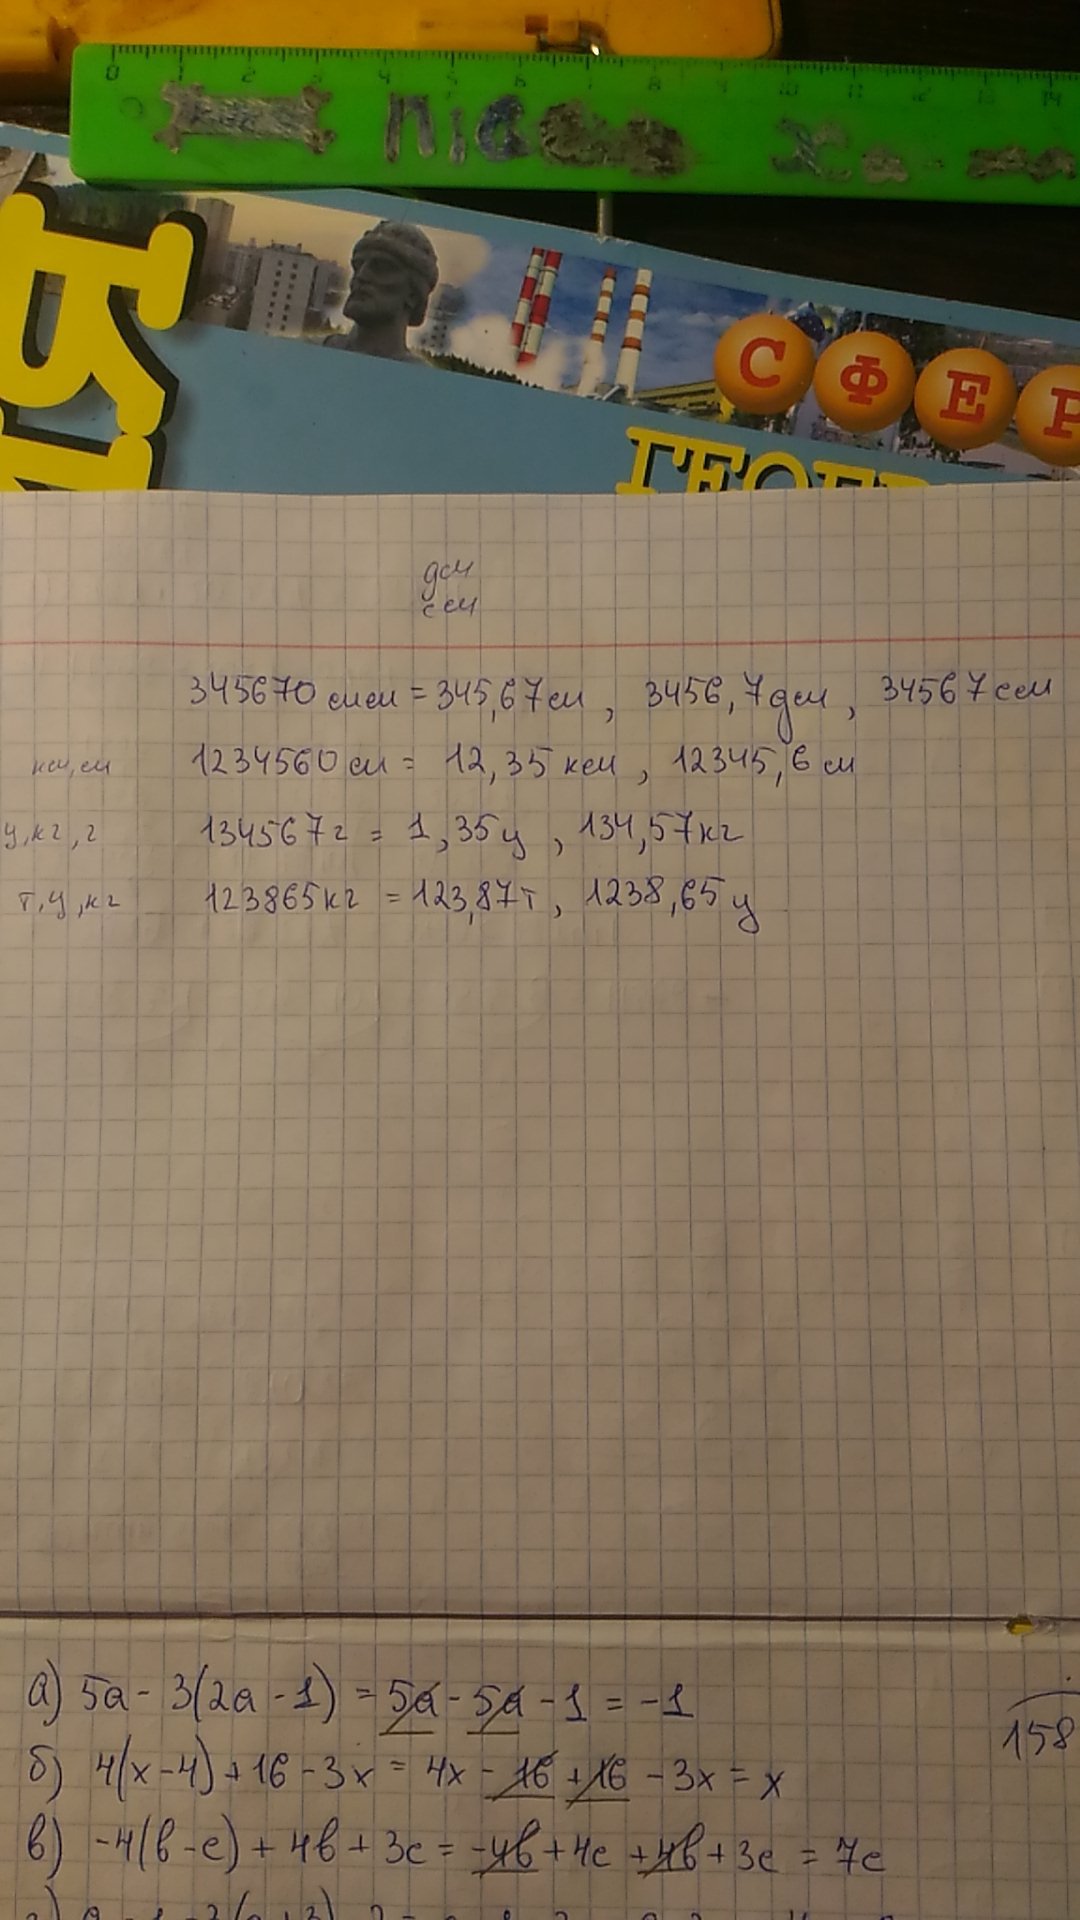 0 1 2 3 4 5 6 7 8 9 10 11 12 13 14
СФЕР
дм
см
345670 мм = 345,67м, 3456,7дм, 34567см
км,м 1234560см = 12,35км, 12345,6м
ц,кг,г 134567г = 1,35ц, 134,57кг
т,ц,кг 123865кг = 123,87т, 1238,65ц
а) 5а - 3(2а - 1) = 5а - 5а - 1 = -1
158
б) 4(x - 4) + 16 - 3x = 4x - 16 + 16 - 3x = x
в) -4(в - с) + 4в + 3с = -4в + 4с + 4в + 3с = 7с